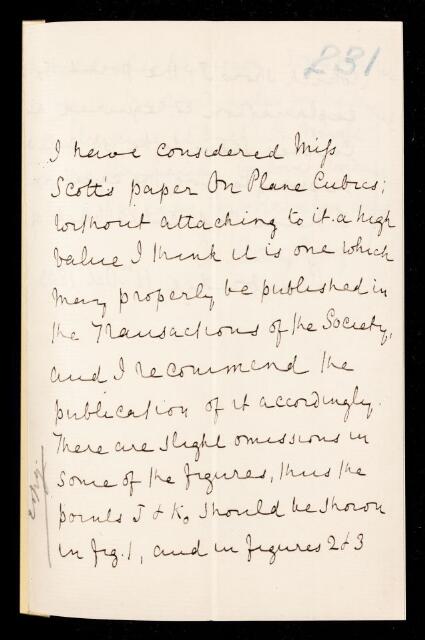 231
I have considered Miss
Scott's paper On Plane Cubics;
without attaching to it a high
value I think it is one which
may properly be published in
the Transactions of the Society,
and I recommend the
publication of it accordingly.
There are slight omissions in
some of the figures, thus the
points J & K₀ should be shown
in fig. 1, and in figures 2 & 3
copy.